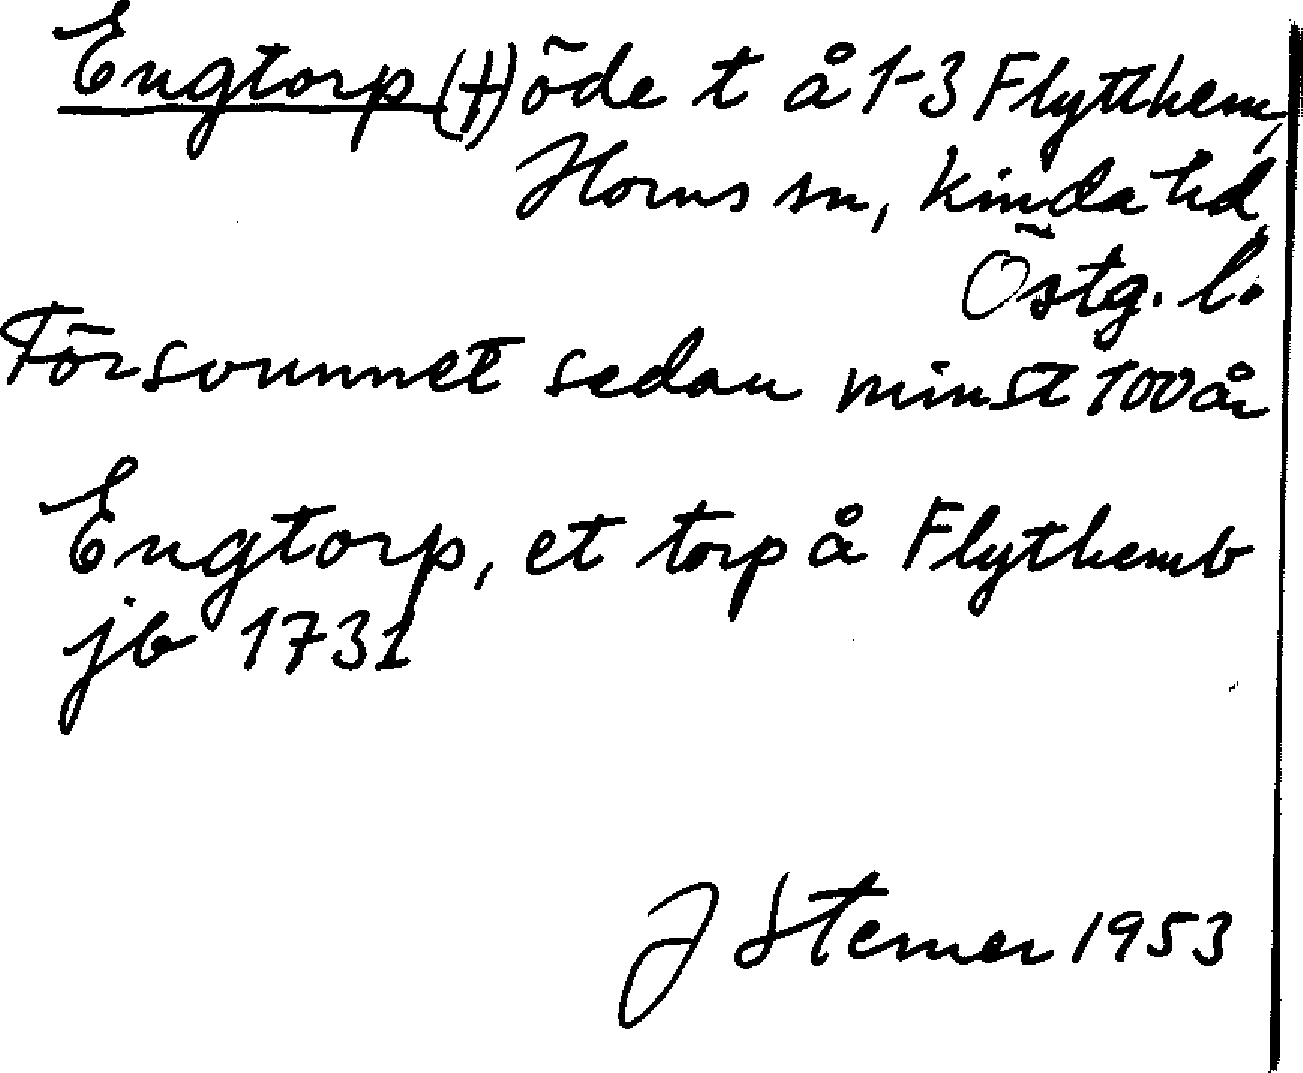 Engtorp (†) öde t å 1-3 Flytthem,
Horns sn, Kinda hd,
Östg. l.
Försvunnet sedan minst 100 år
Engtorp, et torp å Flythemb
jb 1731
J Sterner 1953